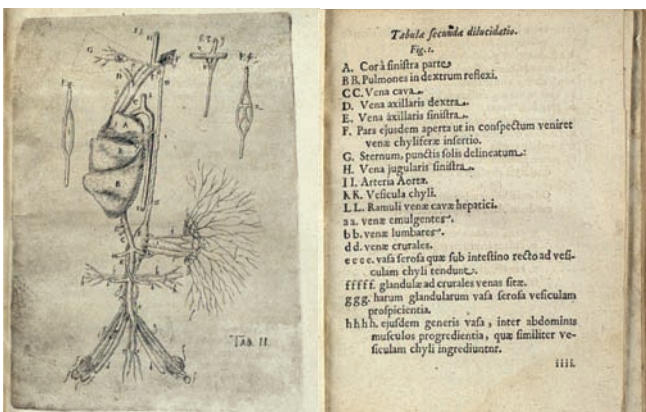 Tab. II.
Tabulæ secundæ dilucidatio.
Fig. 1.
A. Cor à sinistra parte.
B B. Pulmones in dextrum reflexi.
C C. Vena cava.
D. Vena axillaris dextra.
E. Vena axillaris sinistra.
F. Pars ejusdem aperta ut in conspectum veniret
venæ chyliferæ insertio.
G. Sternum, punctis solis delineatum.
H. Vena jugularis sinistra.
I I. Arteria Aorta.
K K. Vesicula chyli.
L L. Ramuli venæ cavæ hepatici.
a a. venæ emulgentes.
b b. venæ lumbares.
d d. venæ crurales.
e e e e. vasa serosa quæ sub intestino recto ad vesi-
culam chyli tendunt.
f f f f f. glandulæ ad crurales venas sitæ.
g g g. harum glandularum vasa serosa vesiculam
prospicientia.
h h h h. ejusdem generis vasa, inter abdominis
musculos progredientia, quæ similiter ve-
siculam chyli ingrediuntur.
iiii.